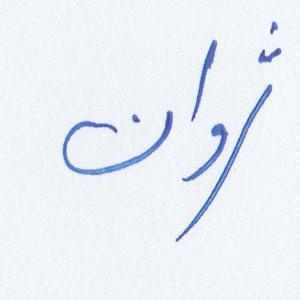 ژوان